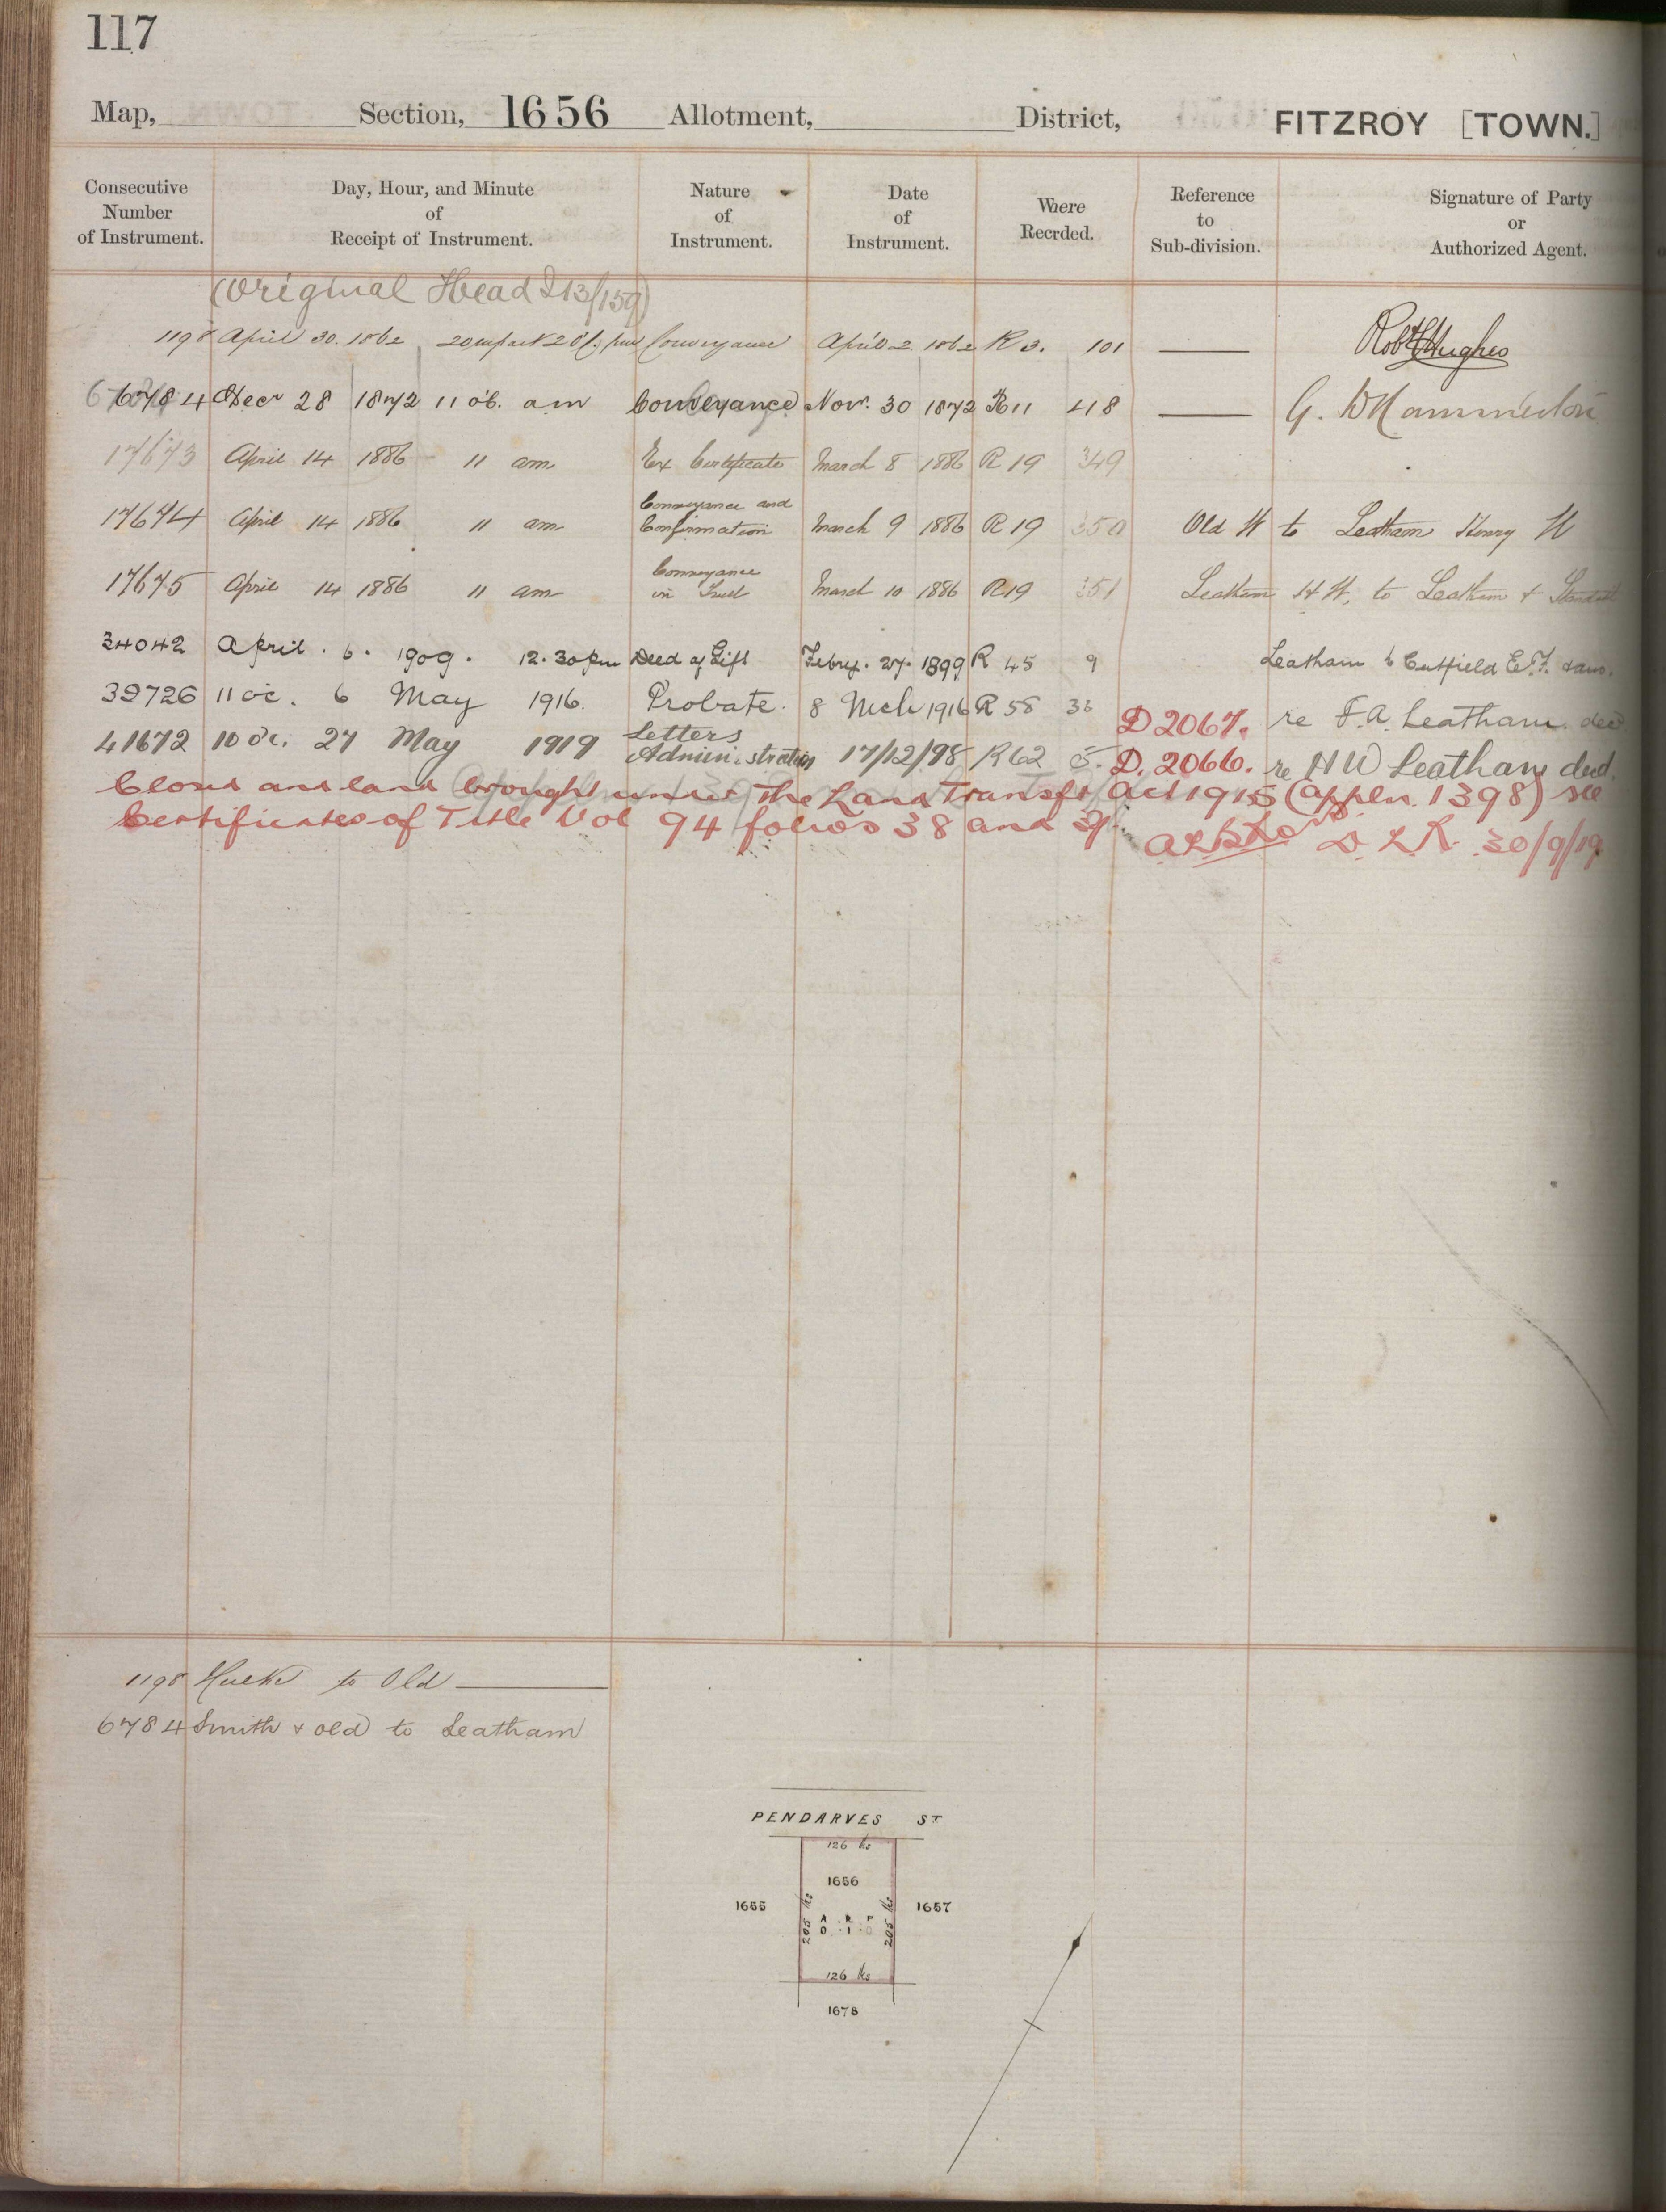 117
Map, Section, 1656 Allotment, District, FITZROY [TOWN.]
Consecutive Number of Instrument. Day, Hour, and Minute of Receipt of Instrument. Nature of Instrument. Date of Instrument. Where Recrded. Reference to Sub-division. Signature of Party or Authorized Agent.
(Original Head I 13/159)
1198 April 30. 1862 20 m past 2 Conveyance April 2 1862 R 3. 101 Robt Hughes
6784 Decr 28 1872 11 oc. am Conveyance Novr. 30 1872 R11 418 G. W Hammerton
17673 April 14 1886 11 am Ex Certificate March 8 1886 R 19 349
17674 April 14 1886 11 am Conveyance and Confirmation March 9 1886 R 19 350 Old W to Leatham Henry W
17675 April 14 1886 11 am Conveyance in Trust March 10 1886 R19 351 Leatham H W, to Leatham & Standish
34042 April. 6. 1909. 12.30 pm Deed of Gift Febry. 27. 1899 R 45 9 Leatham to Cutfield E.F.
39726 11 oc. 6 May 1916. Probate. 8 Mch 1916 R 58 D 2067. re F. A. Leatham. decd
41672 10 oc. 27 May 1919 Letters Administration 17/12/98 R62 5. D. 2066. re H W Leatham decd.
Closed and land brought under The Land Transfer Act 1915 (Appln. 1398) see
Certificates of Title Vol 94 folios 38 and D. L. R. 30/9/19
1198 to Old
6784 Smith & Old to Leatham
PENDARVES ST
126 lks
1656
1655 205 lks A R P 205 lks 1657
0 . 1 . 0
126 lks
1678